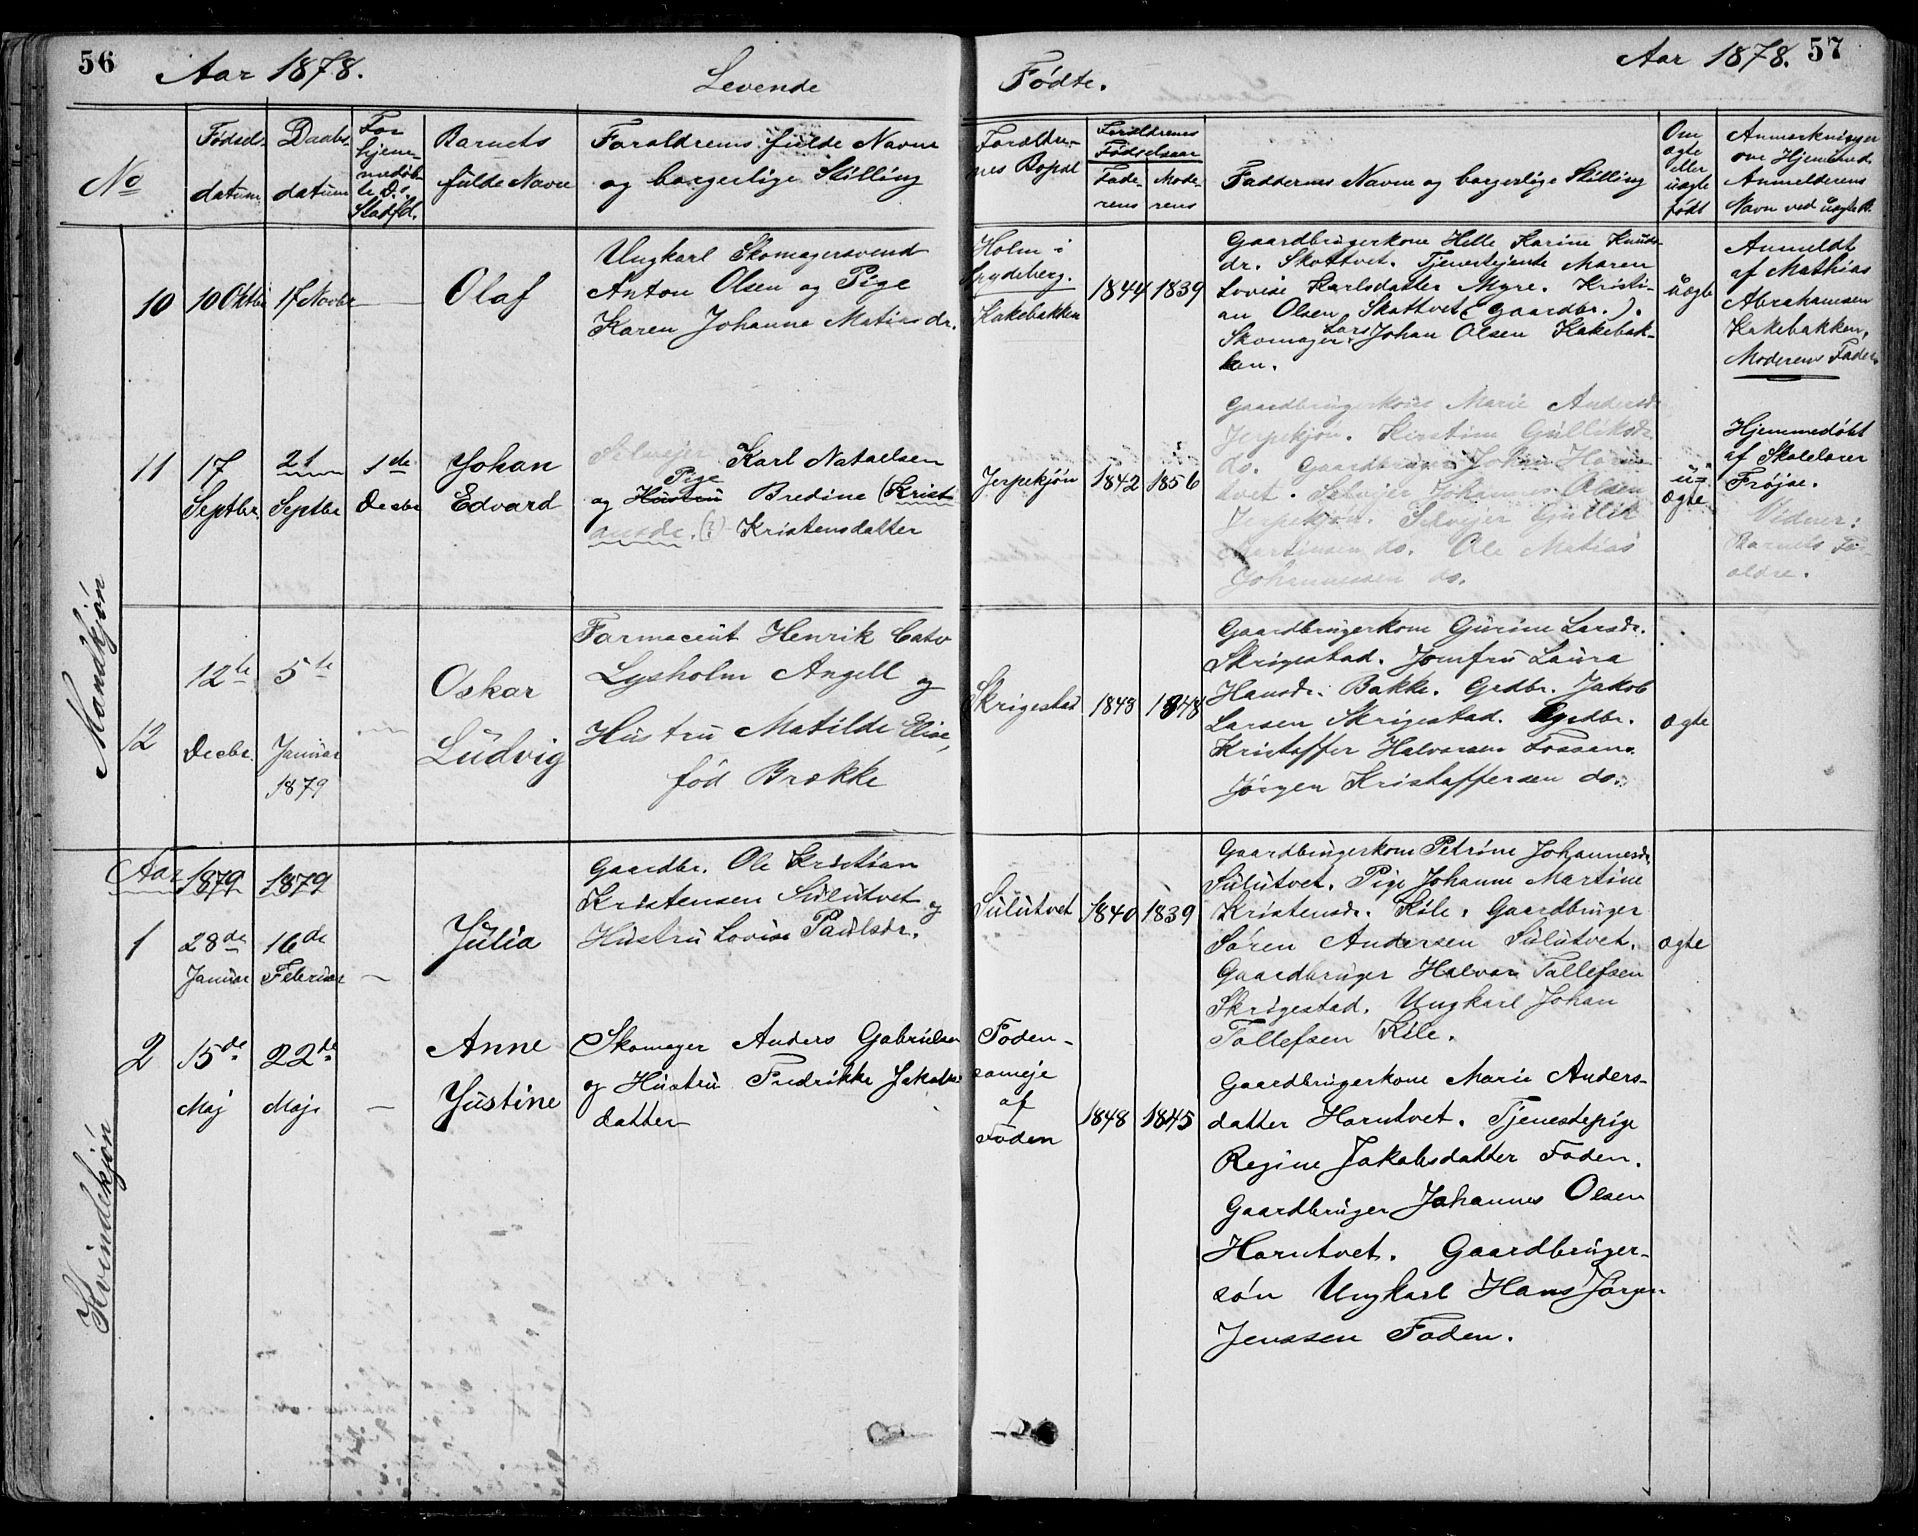 56
Aar 1878.
Levende
Fødte.
Aar 1878.
57
No
Fødsels-
datum
Daabs-
datum
For
hjem-
medøb-
te D.
Stadfd.
Barnets
fulde Navn
Foraldrenes fulde Navne
og borgerlige Stilling
Foraldre-
nes Bopæl
Foraldrenes
Fødselsaar
Fade-
rens
Mode-
rens
Faddernes Navne og borgerlige Stilling
Om
ægte
eller
uægte
født
Anmærkninger
om Hjemmed.
Anmelderens
Navn ved uægte B.
Mandkjøn
10
10 Oktbr
17 Novbr
—
Olaf
Ungkarl Skomagersvend
Anton Olsen og Pige
Karen Johanne Matiasdr.
Holm i
Spydeberg.
Kakebakken
1844
1839
Gaardbrugerkone Helle Karine Knuds-
dr. Skottvet. Tjenestejente Maren
Lovise Karlsdatter Myre. Kristi-
an Olsen Skottvet (Gaardbr.).
Skomager Lars Johan Olsen Kakebak-
ken.
uægte
Anmeldt
af Mathias
Abrahamsen
Kakebakken,
Moderens Fader.
11
17
Septbr.
21
Septbr
1de
Decbr
Johan
Edvard
Selvejer Karl Nataelsen
og Hustru Pige Bredine (Krist-
ansdr. (?) Kristensdatter
Jerpekjøn
1842
1856
Gaardbrugerkone Marie Andersdr
Jerpekjøn. Kirstine Gulliksdr.
do. Gaardbruger Johan Horn-
tvet. Selvejer Johannes Olsen
Jerpekjøn. Selvejer Gullik
Martinsen do. Ole Matias
Johannessen do.
u-
ægte
Hjemmedøbt
af Skolelærer
Frøjse.
Vidner:
Barnets For-
ældre.
12
12te
Decbr.
5te
Januar
1879
—
Oskar
Ludvig
Farmaceut Henrik Cato
Lysholm Angell og
Hustru Matilde Elise,
fød Brække
Skrigestad
1843
1848
Gaardbrugerkone Gurine Larsdr.
Skrigestad. Jomfru Laura
Hansdr. Bakke. Grdbr. Jakob
Larsen Skrigestad. Grdbr.
Kristoffer Halvorsen Fossane.
Jørgen Kristoffersen do.
ægte
Kvindekjøn
Aar 1879 1879
1
28de
Januar
16de
Februar
—
Julia
Gaardbr. Ole Kristian
Kristensen Sulutvet og
Hustru Lovise Paulsdr.
Sulutvet
1840
1839
Gaardbrugerkone Petrine Johannesdr.
Sulutvet. Pige Johanne Martine
Kristensdr. Kile. Gaardbruger
Søren Andersen Sulutvet.
Gaardbruger Halvor Tollefsen
Skrigestad. Ungkarl Johan
Tollefsen Kile.
ægte
2
15de
Maj
22de
Maj.
—
Anne
Justine
Skomager Anders Gabrielsen
og Hustru Fredrikke Jakobs-
datter
Foden-
sameje
af
Foden
1848
1845
Gaardbrugerkone Marie Anders-
datter Horntvet. Tjenestepige
Regine Jakobsdatter Foden.
Gaardbruger Johannes Olsen
Horntvet. Gaardbruger-
søn Ungkarl Hans Jørgen
Jenssen Foden.